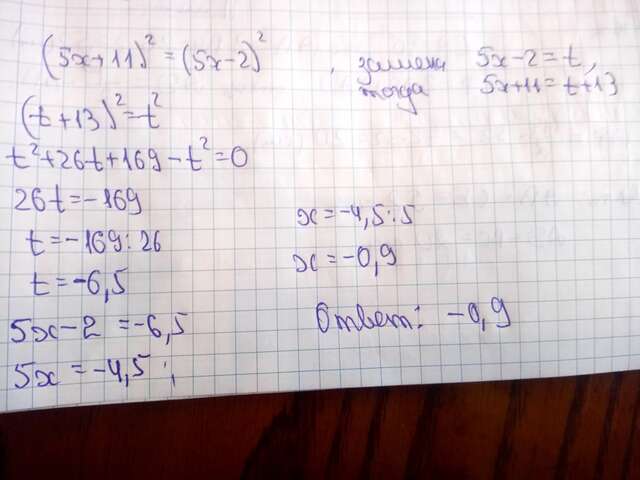 (5x+11)² = (5x-2)² , замена 5x-2=t,
тогда 5x+11=t+13
(t+13)²=t²
t²+26t+169-t²=0
26t=-169
t=-169:26
t=-6,5
5x-2=-6,5
5x=-4,5;
x=-4,5:5
x=-0,9
Ответ: -0,9